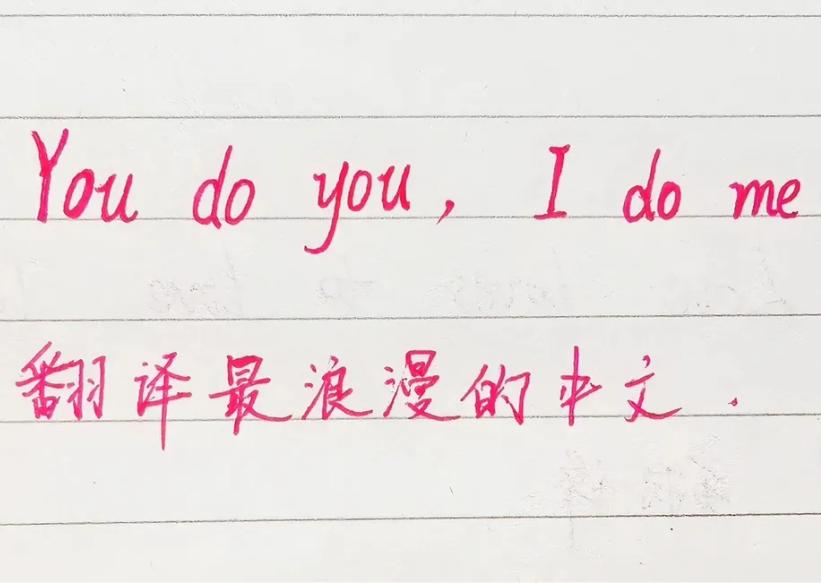 You do you, I do me
翻译最浪漫的中文.